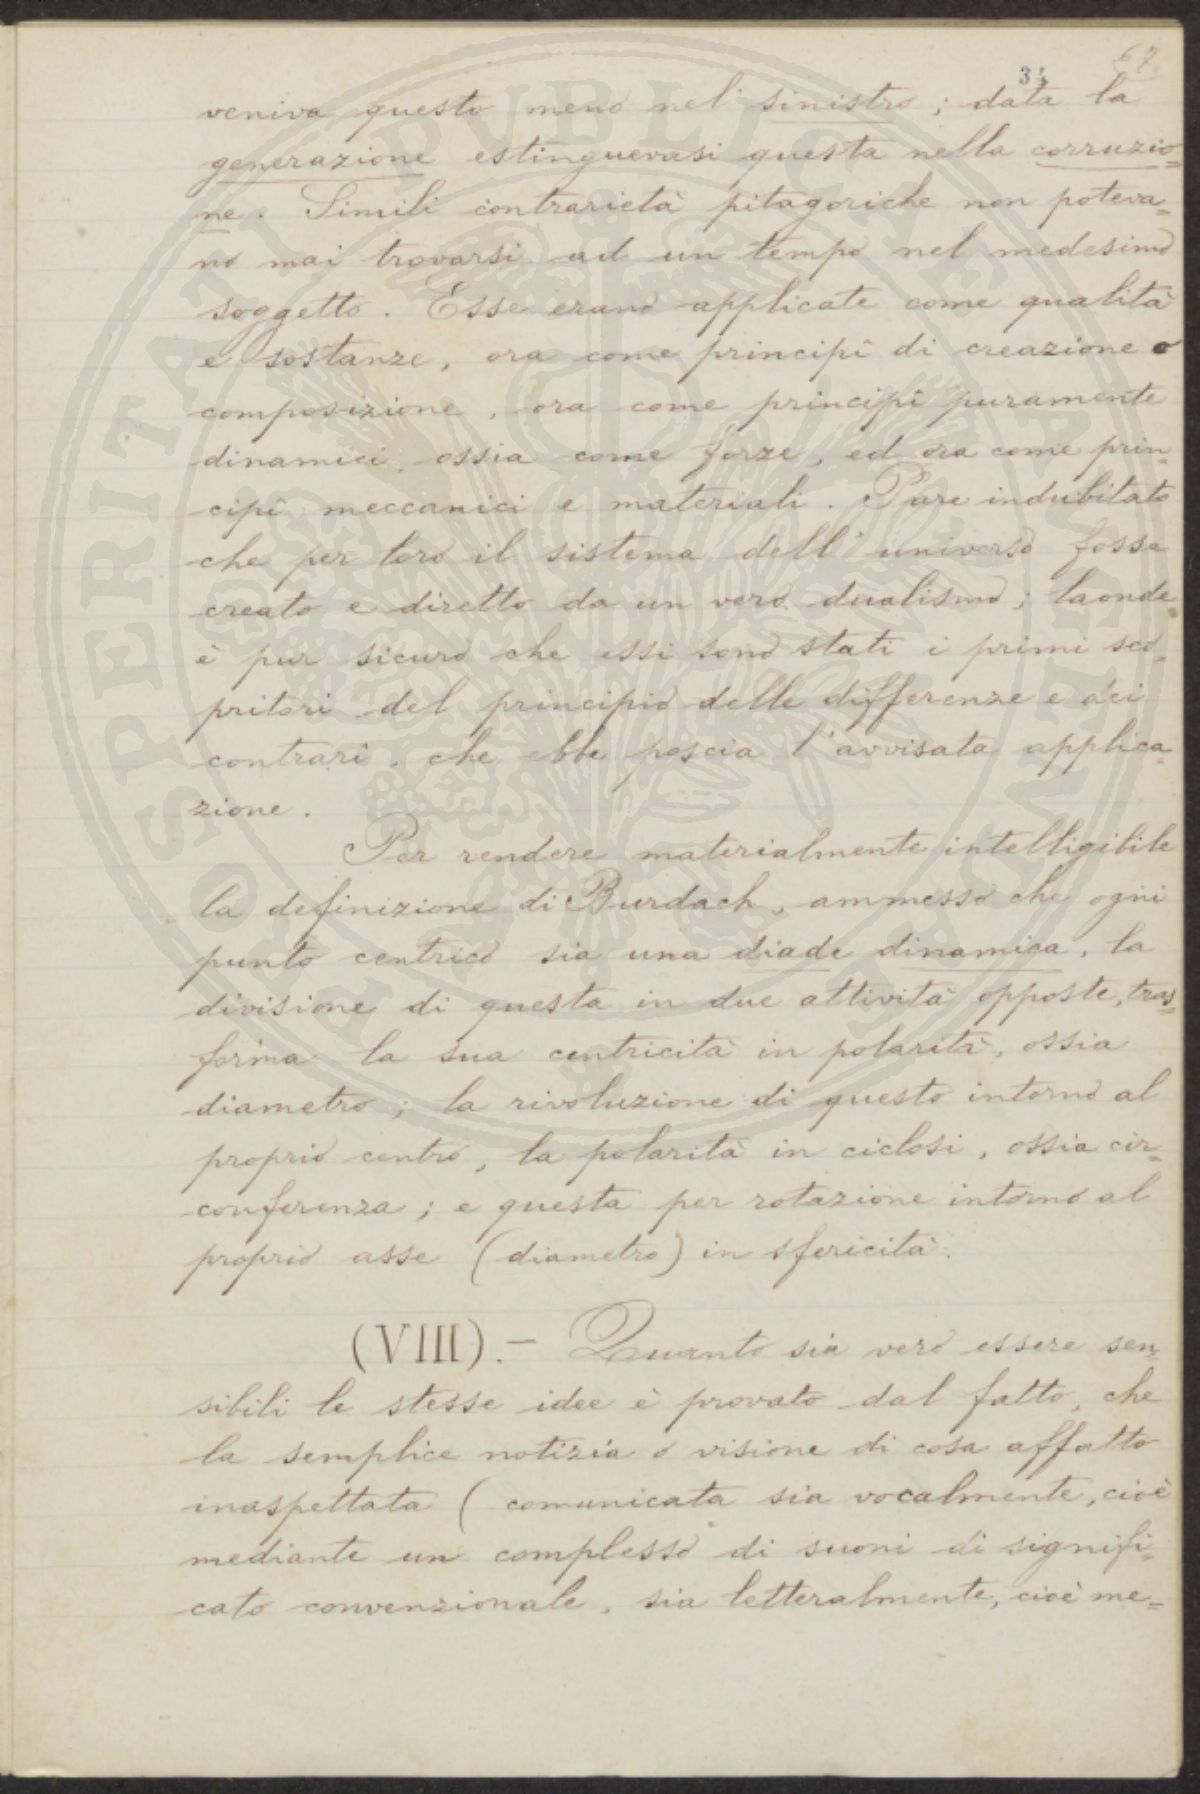 67
34
veniva questo meno nel sinistro; data la
generazione estinguevasi questa nella corruzio=
ne. Simili contrarietà pitagoriche non poteva=
no mai trovarsi ad un tempo nel medesimo
soggetto. Esse erano applicate come qualità
e sostanze, ora come principî di creazione o
composizione, ora come principî puramente
dinamici, ossia come forze, ed ora come prin=
cipî meccanici e materiali. Pare indubitato
che per loro il sistema dell'universo fosse
creato e diretto da un vero dualismo; laonde
è pur sicuro che essi sono stati i primi sco=
pritori del principio delle differenze e dei
contrari, che ebbe poscia l'avvisata applica=
zione.
Per rendere materialmente intelligibile
la definizione di Burdach, ammesso che ogni
punto centrico sia una diade dinamica, la
divisione di questa in due attività opposte, tras=
forma la sua centricità in polarità, ossia
diametro; la rivoluzione di questo intorno al
proprio centro, la polarità in ciclosi, ossia cir=
conferenza; e questa per rotazione intorno al
proprio asse (diametro) in sfericità.
(VIII).— Quanto sia vero essere sen=
sibili le stesse idee è provato dal fatto, che
la semplice notizia o visione di cosa affatto
inaspettata (comunicata sia vocalmente, cioè
mediante un complesso di suoni di signifi=
cato convenzionale, sia letteralmente, cioè me=
PROSPERITATI PUBLICAE AUGENDAE